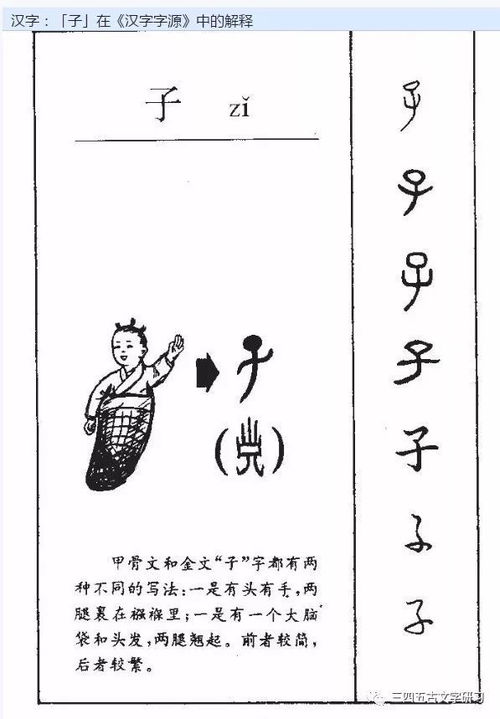 汉字：「子」在《汉字字源》中的解释
子 zǐ
甲骨文和金文“子”字都有两
种不同的写法：一是有头有手，两
腿裹在襁褓里；一是有一个大脑
袋和头发，两腿翘起。前者较简，
后者较繁。
子
子
子
子
子
子
子
三四五古文字研习